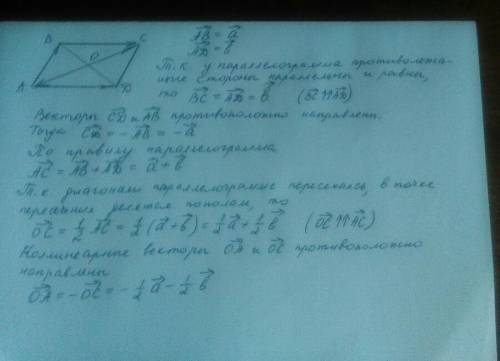 B C
O
A D
A͞B⃗ = a⃗
AD⃗ = b⃗
Т.к. у параллелограмма противополож-
ные стороны параллельны и равны,
то BC⃗ = AD⃗ = b⃗ (BC⃗ ↑↑ AD⃗)
Векторы CD⃗ и AB⃗ противоположно направлены.
Тогда CD⃗ = - AB⃗ = - a⃗
По правилу параллелограмма
AC⃗ = AB⃗ + AD⃗ = a⃗ + b⃗
Т.к. диагонали параллелограмма пересекаясь, в точке
пересечения делятся пополам, то
OC⃗ = 1/2 AC⃗ = 1/2 (a⃗ + b⃗) = 1/2 a⃗ + 1/2 b⃗ (OC⃗ ↑↑ AC⃗)
Коллинеарные векторы OA⃗ и OC⃗ противоположно
направлены
OA⃗ = - OC⃗ = - 1/2 a⃗ - 1/2 b⃗